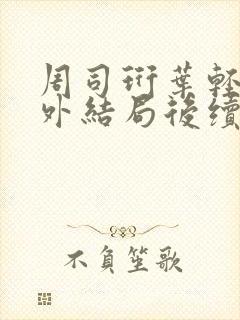 周司珩葉輕
外結局後續
不負笙歌